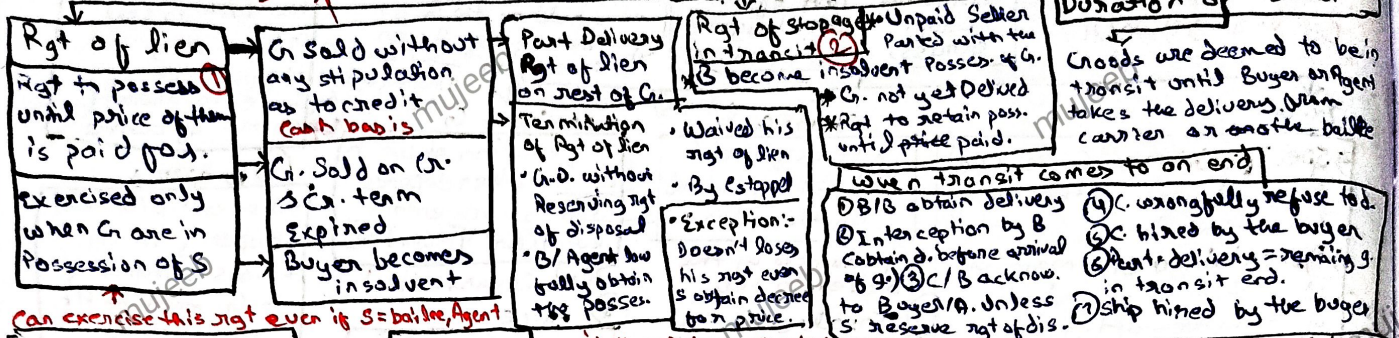 Rgt of lien
Rgt to possess ①
until price of them
is paid for.
Exercised only
when G are in
Possession of S
Can exercise this rgt even if S = bailee, Agent
G sold without
any stipulation
as to credit
Cash basis
G. Sold on Cr.
& Cr. term
Expired
Buyer becomes
insolvent
Part Delivery
Rgt of lien
on rest of G.
Termination
of Rgt of lien
• G.D. without
Reserving rgt
of disposal
• B/Agent law
fully obtain
posses.
• Waived his
rgt of lien
• By Estoppel
• Exception:-
Doesn't loses
his rgt even
S obtain decree
for price.
Rgt of stopage
in transit ②
* B become insolvent
* Unpaid Seller
Parted with the
Posses. of G.
* G. not yet Delived
* Rgt to retain poss.
until price paid.
Duration
Goods are deemed to be in
transit until Buyer or Agent
takes the delivery from
carrier or another bailee
When transit comes to an end
① B/B obtain delivery
② Interception by B
(obtain d. before arrival
of g.) ③ C/B acknow.
to Buyer/A. Unless
S reserve rgt of dis.
④ C. wrongfully refuse to d.
⑤ C. hired by the buyer
⑥ Part = delivery = remaing g.
in transit end.
⑦ Ship hired by the buyer
mujeeb
mujeeb
mujeeb
mujeeb
mujeeb